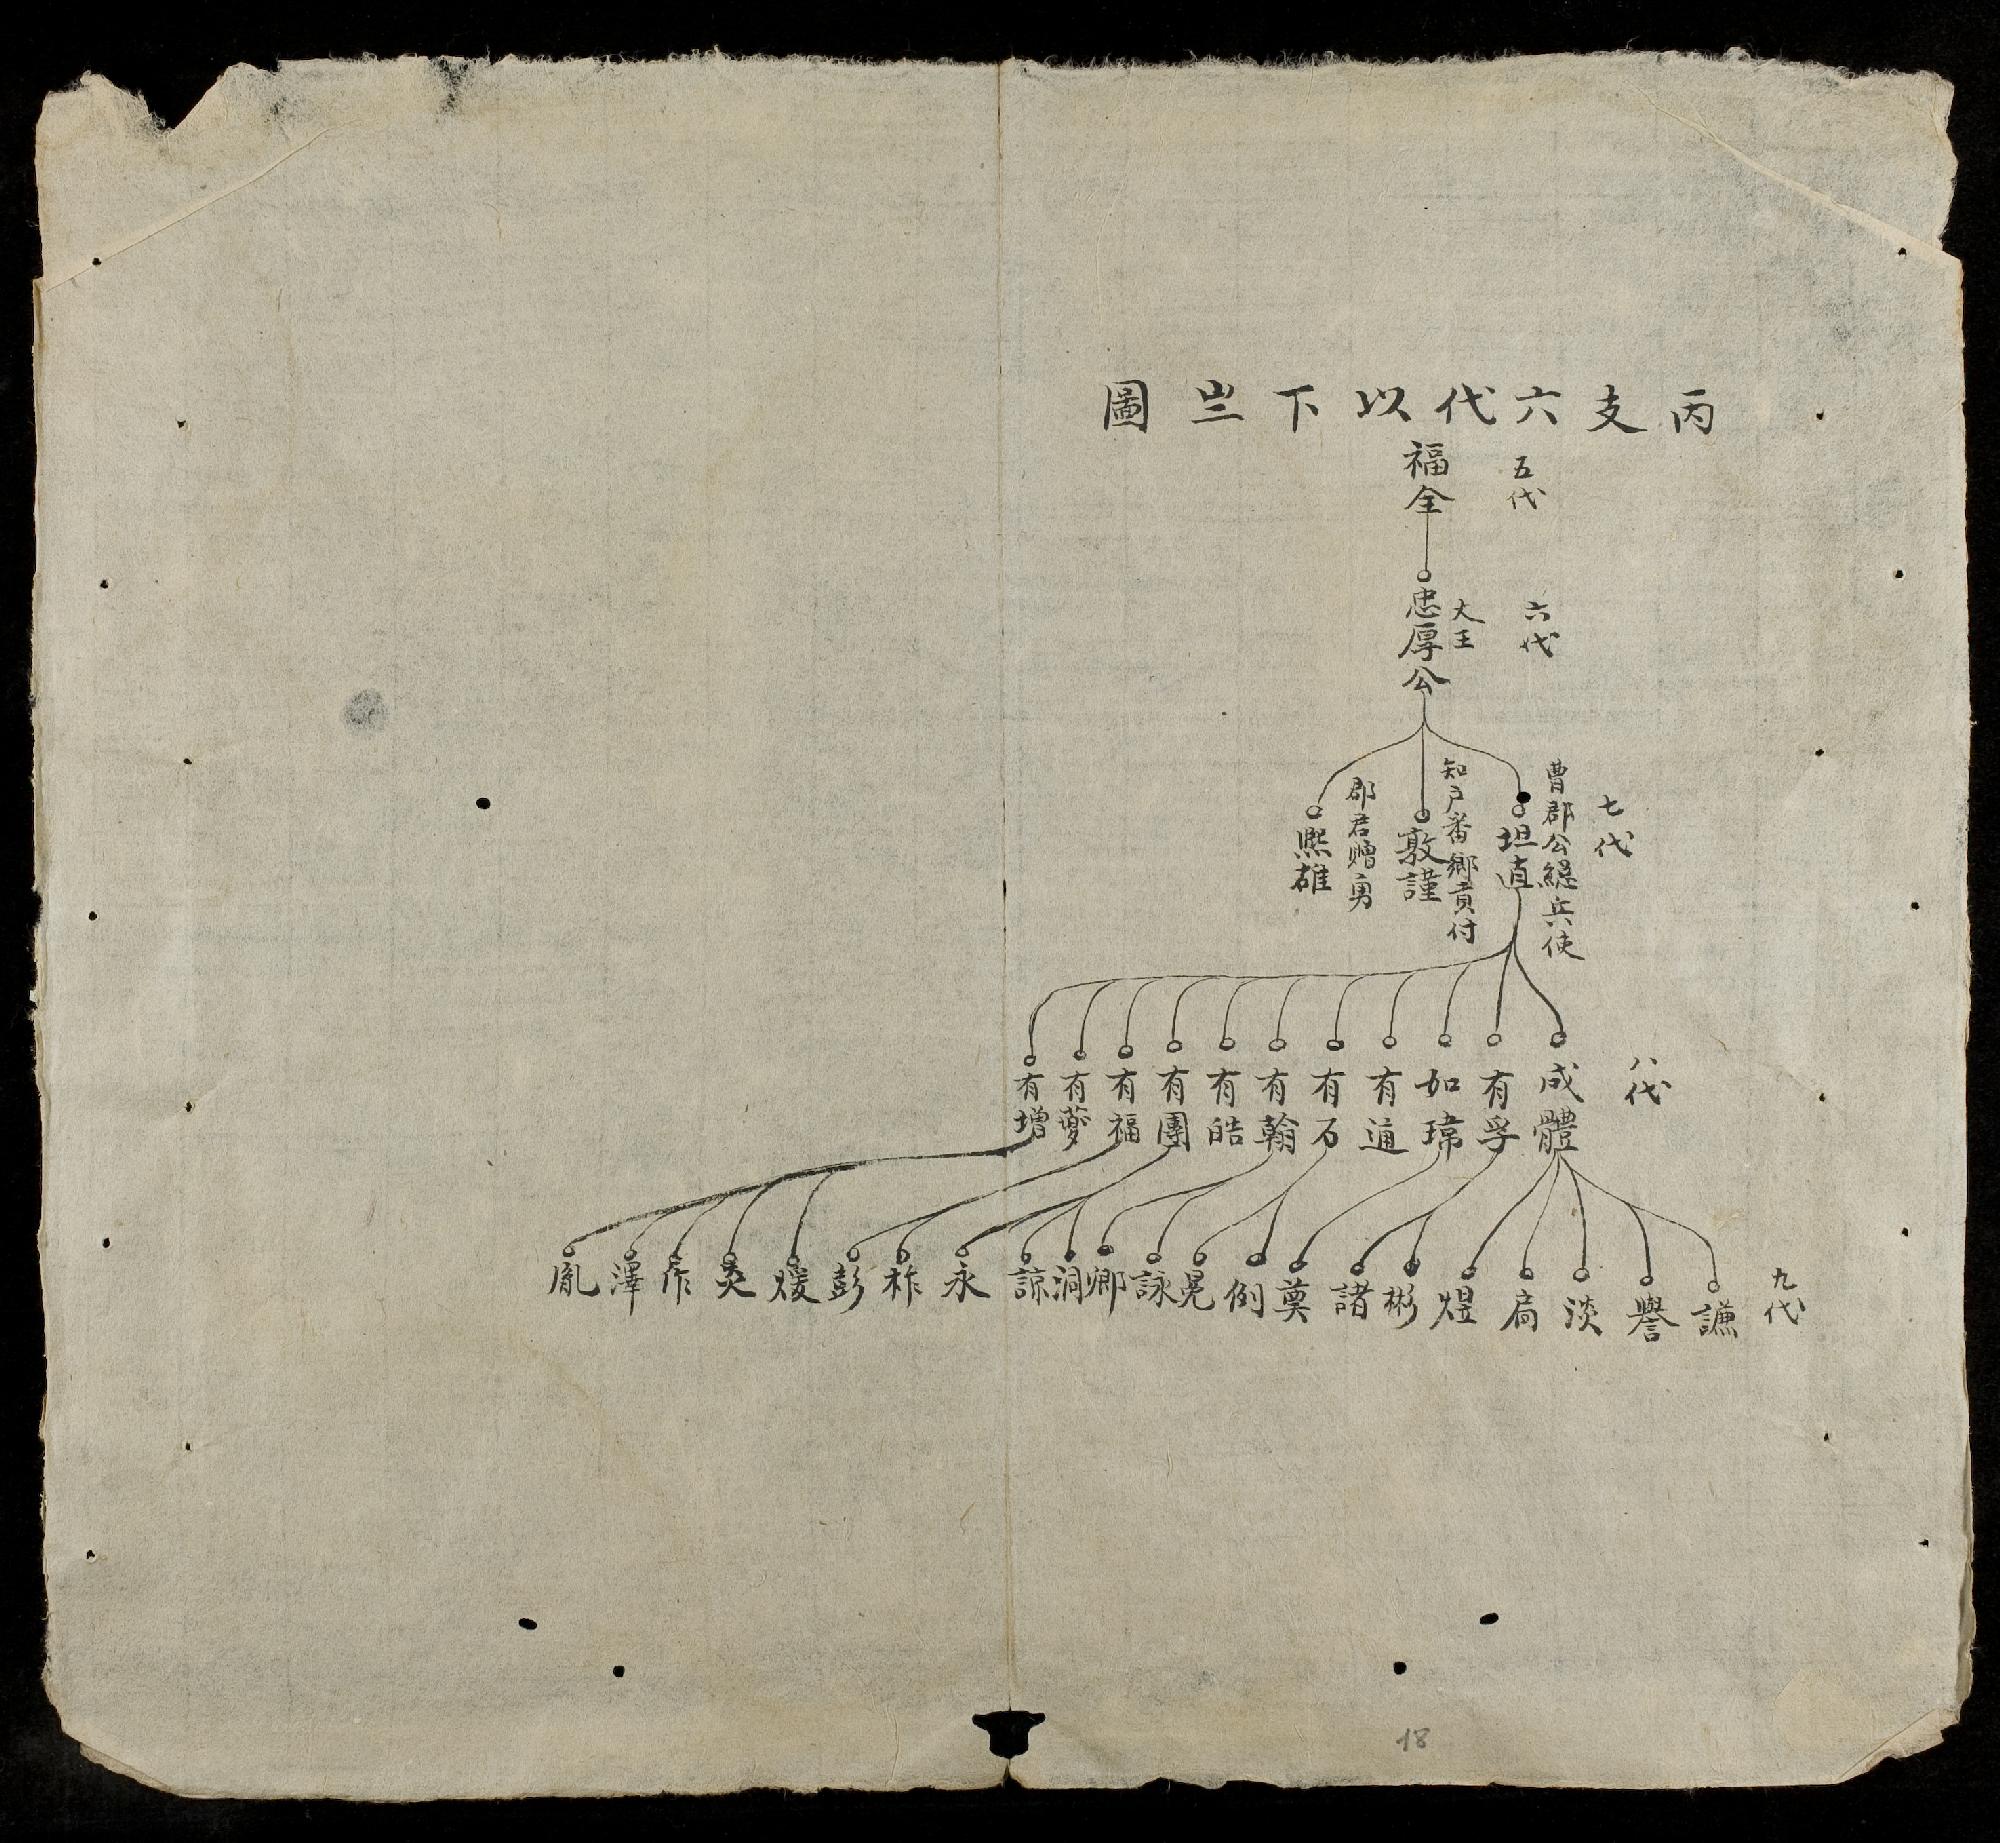 丙支六代以下𠀍圖
五代
福全
六代
大王
忠厚公
七代
曹郡公緦兵使
坦直
知戸番鄉貢付
敦謹
郡君贈勇
熙雄
八代
成體
有孚
如瑋
有通
有石
有翰
有皓
有團
有福
有夢
有增
九代
謙
譽
淡
扃
煜
彬
諸
奠
例
晃
詠
卿
洞
諒
永
祚
彭
煖
炅
澤
胤